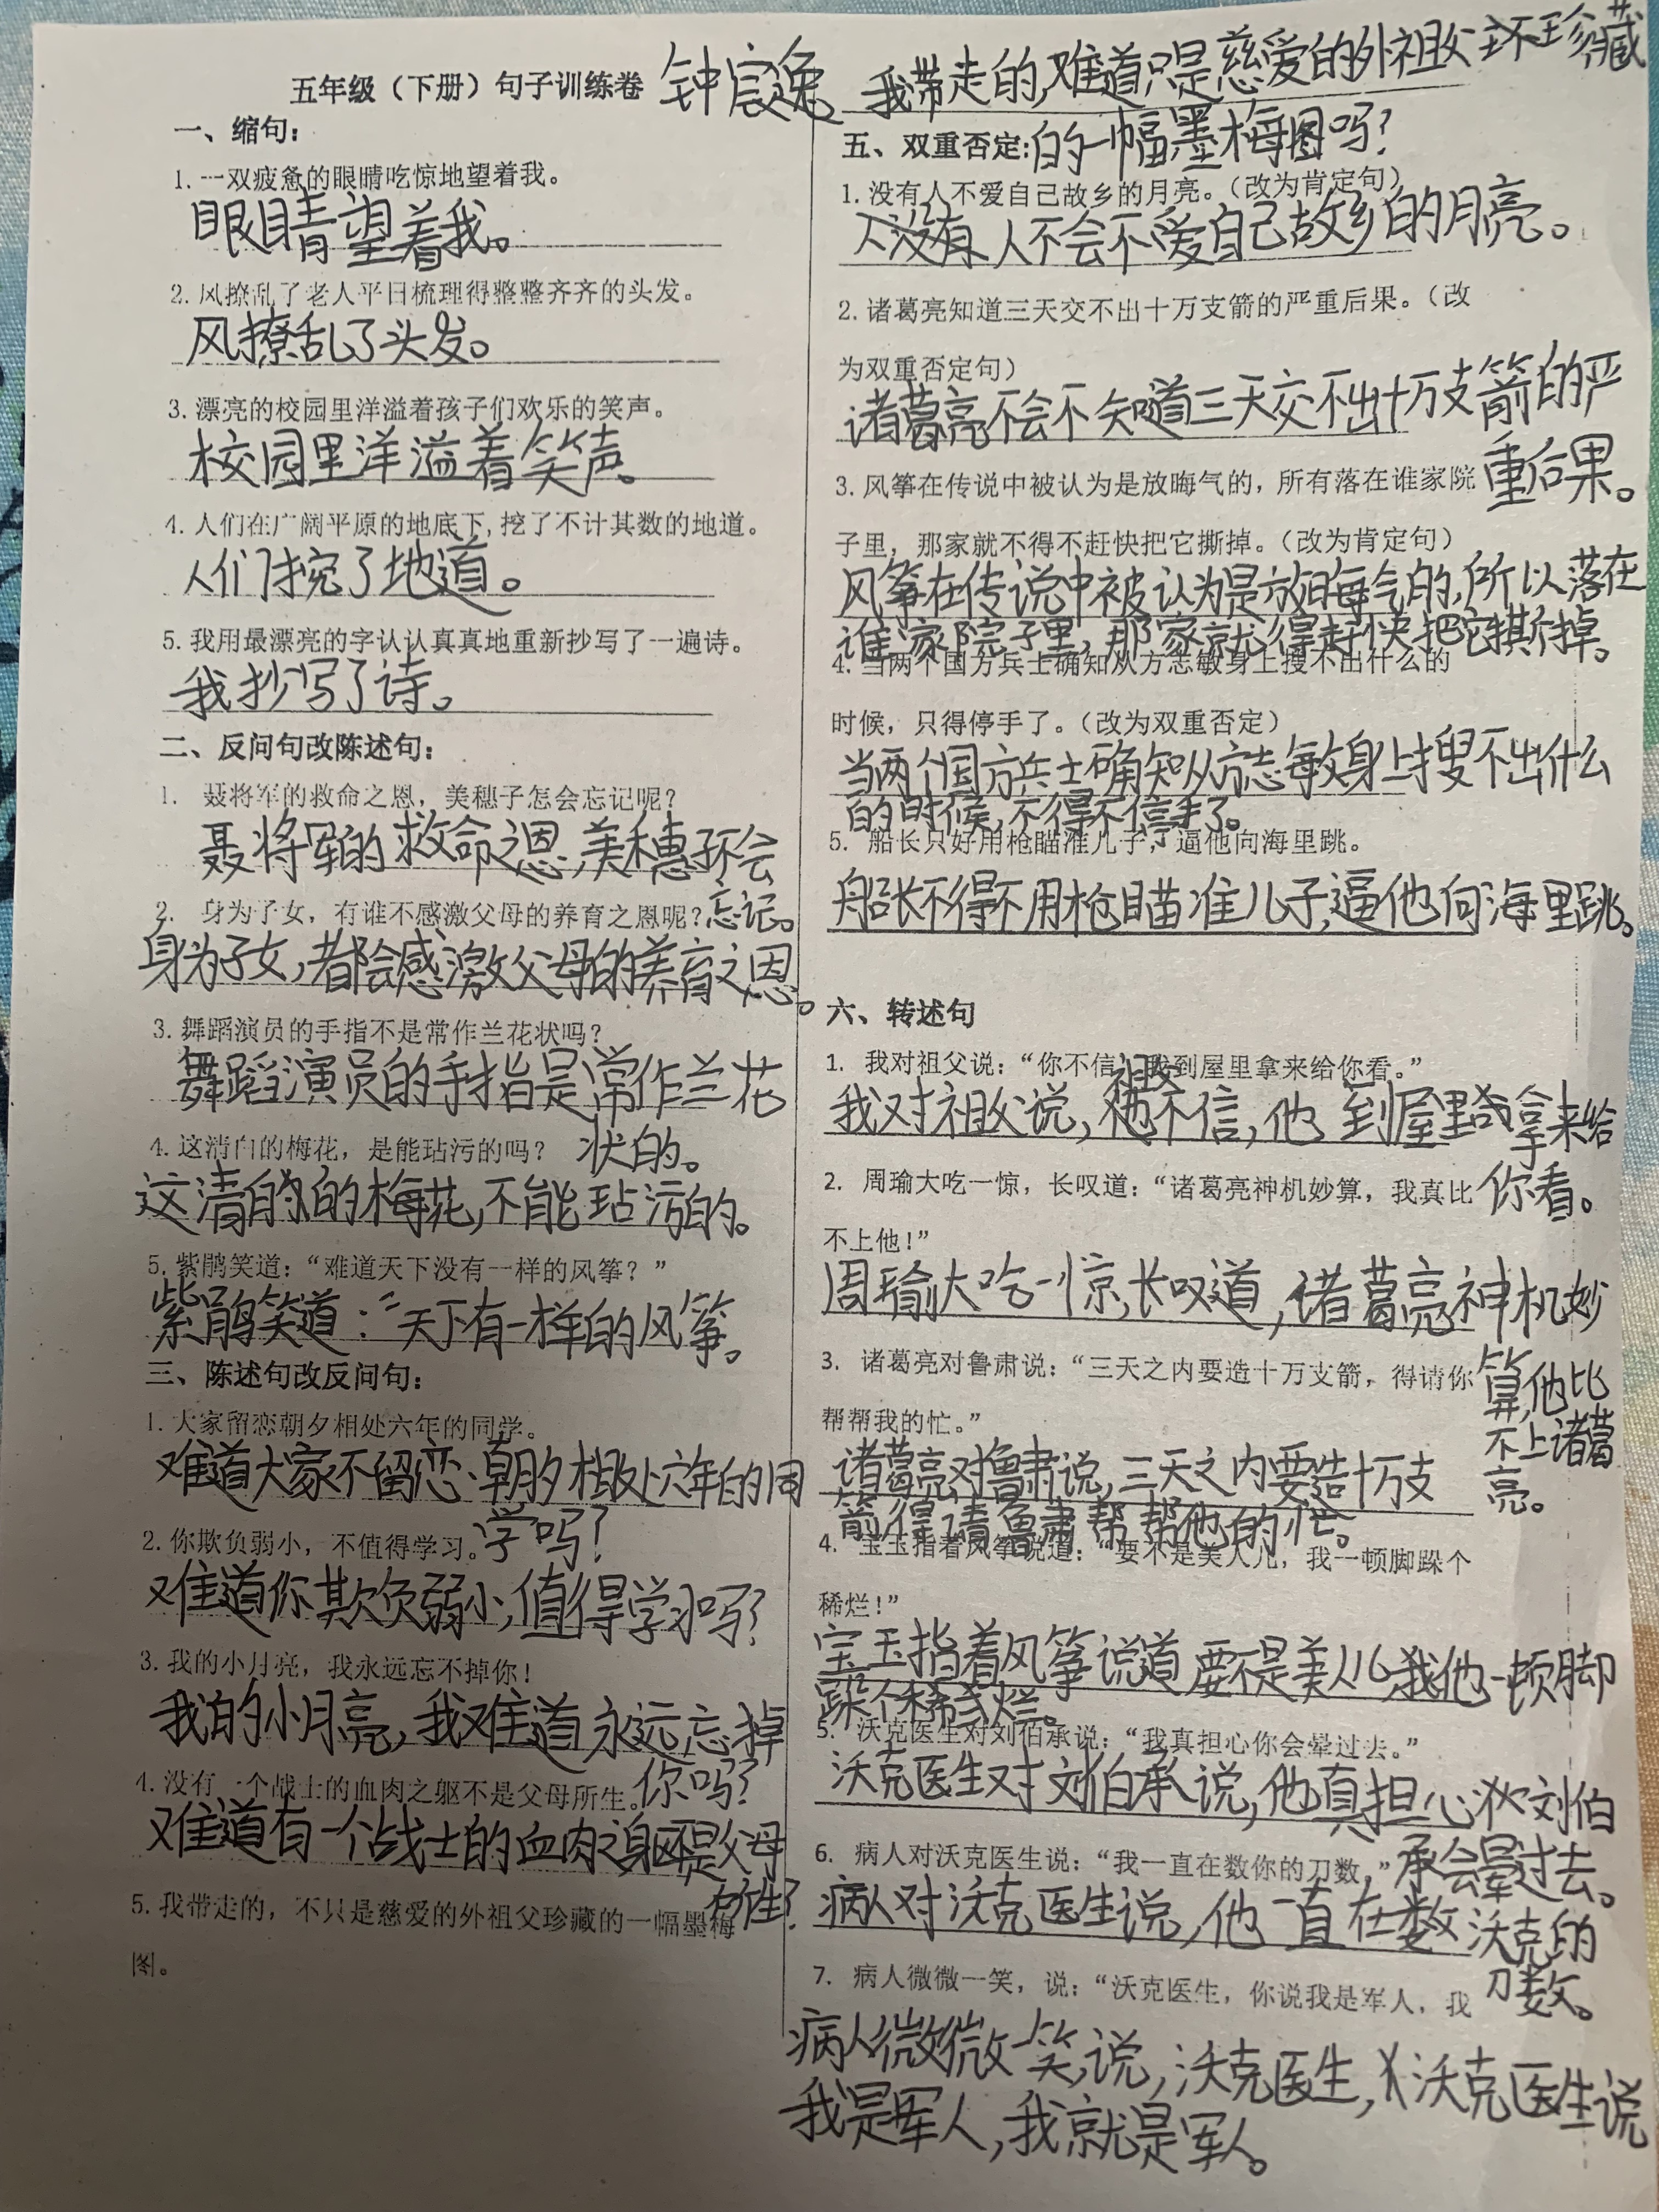 五年级（下册）句子训练卷 钟宸逸
一、缩句：
1. 一双疲惫的眼睛吃惊地望着我。
眼睛望着我。
2. 风撩乱了老人平日梳理得整整齐齐的头发。
风撩乱了头发。
3. 漂亮的校园里洋溢着孩子们欢乐的笑声。
校园里洋溢着笑声。
4. 人们在广阔平原的地底下,挖了不计其数的地道。
人们挖了地道。
5. 我用最漂亮的字认认真真地重新抄写了一遍诗。
我抄写了诗。
二、反问句改陈述句：
1. 聂将军的救命之恩，美穗子怎会忘记呢？
聂将军的救命之恩,美穗子不会
忘记。
2. 身为子女，有谁不感激父母的养育之恩呢？
身为子女,都会感激父母的养育之恩。
3. 舞蹈演员的手指不是常作兰花状吗？
舞蹈演员的手指是常作兰花
状的。
4. 这清白的梅花，是能玷污的吗？
这清的的梅花,不能玷污的。
5. 紫鹃笑道：“难道天下没有一样的风筝？”
紫鹃笑道：“天下有一样的风筝。
三、陈述句改反问句：
1. 大家留恋朝夕相处六年的同学。
难道大家不留恋朝夕相处六年的同
学吗？
2. 你欺负弱小，不值得学习。
难道你欺负弱小,值得学习吗？
3. 我的小月亮，我永远忘不掉你！
我的小月亮,我难道永远忘掉
你吗？
4. 没有一个战士的血肉之躯不是父母所生。
难道有一个战士的血肉之躯不是父母
所生？
5. 我带走的，不只是慈爱的外祖父珍藏的一幅墨梅
图。
我带走的,难道只是慈爱的外祖父珍藏
的一幅墨梅图吗？
五、双重否定：
1. 没有人不爱自己故乡的月亮。（改为肯定句）
没有人不会不爱自己故乡的月亮。
2. 诸葛亮知道三天交不出十万支箭的严重后果。（改
为双重否定句）
诸葛亮不会不知道三天交不出十万支箭的严
重后果。
3. 风筝在传说中被认为是放晦气的，所有落在谁家院
子里，那家就不得不赶快把它撕掉。（改为肯定句）
风筝在传说中被认为是放晦气的,所以落在
谁家院子里,那家就得赶快把它撕掉。
4. 当两个国方兵士确知从方志敏身上搜不出什么的
时候，只得停手了。（改为双重否定）
当两个国方兵士确知从方志敏身上搜不出什么
的时候,不得不停手了。
5. 船长只好用枪瞄准儿子，逼他向海里跳。
船长不得不用枪瞄准儿子,逼他向海里跳。
六、转述句
1. 我对祖父说：“你不信，我到屋里拿来给你看。”
我对祖父说,祖父不信,他到屋里拿来给
你看。
2. 周瑜大吃一惊，长叹道：“诸葛亮神机妙算，我真比
不上他！”
周瑜大吃一惊,长叹道,诸葛亮神机妙
算,他比
不上诸葛
亮。
3. 诸葛亮对鲁肃说：“三天之内要造十万支箭，得请你
帮帮我的忙。”
诸葛亮对鲁肃说,三天之内要造十万支
箭得请鲁肃帮帮他的忙。
4. 宝玉指着风筝说道：“要不是美人儿，我一顿脚跺个
稀烂！”
宝玉指着风筝说道要不是美人儿他一顿脚
跺个稀烂。
5. 沃克医生对刘伯承说：“我真担心你会晕过去。”
沃克医生对刘伯承说,他真担心刘伯
承会晕过去。
6. 病人对沃克医生说：“我一直在数你的刀数，”
病人对沃克医生说,他一直在数沃克的
刀数。
7. 病人微微一笑，说：“沃克医生，你说我是军人，我
病人微微一笑,说,沃克医生,沃克医生说
我是军人,我就是军人。